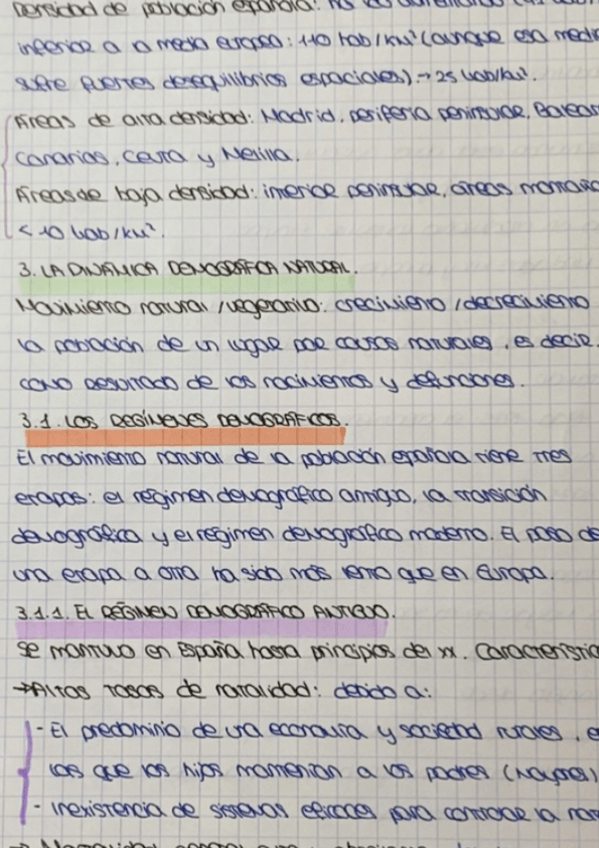 Densidad de población española: ha ido aumentando
inferior a la media europea: 110 hab/km² (aunque esa media
sufre fuertes desequilibrios espaciales). → 25 hab/km².
Áreas de alta densidad: Madrid, periferia peninsular, Balear
Canarias, Ceuta y Melilla.
Áreas de baja densidad: interior peninsular, áreas montaño
< 10 hab/km².
3. LA DINÁMICA DEMOGRÁFICA NATURAL.
Movimiento natural/vegetativo: crecimiento/decrecimiento
la población de un lugar por causas naturales, es decir,
como resultado de los nacimientos y defunciones.
3.1. LOS REGÍMENES DEMOGRÁFICOS.
El movimiento natural de la población española tiene tres
etapas: el régimen demográfico antiguo, la transición
demográfica y el régimen demográfico moderno. El paso de
una etapa a otra ha sido más lento que en Europa.
3.1.1. EL RÉGIMEN DEMOGRÁFICO ANTIGUO.
Se mantuvo en España hasta principios del XX. Característica
→ Altas tasas de natalidad: debido a:
- El predominio de una economía y sociedad rurales, e
las que los hijos mantenían a los padres (mayores)
- Inexistencia de sistemas eficaces para controlar la nat